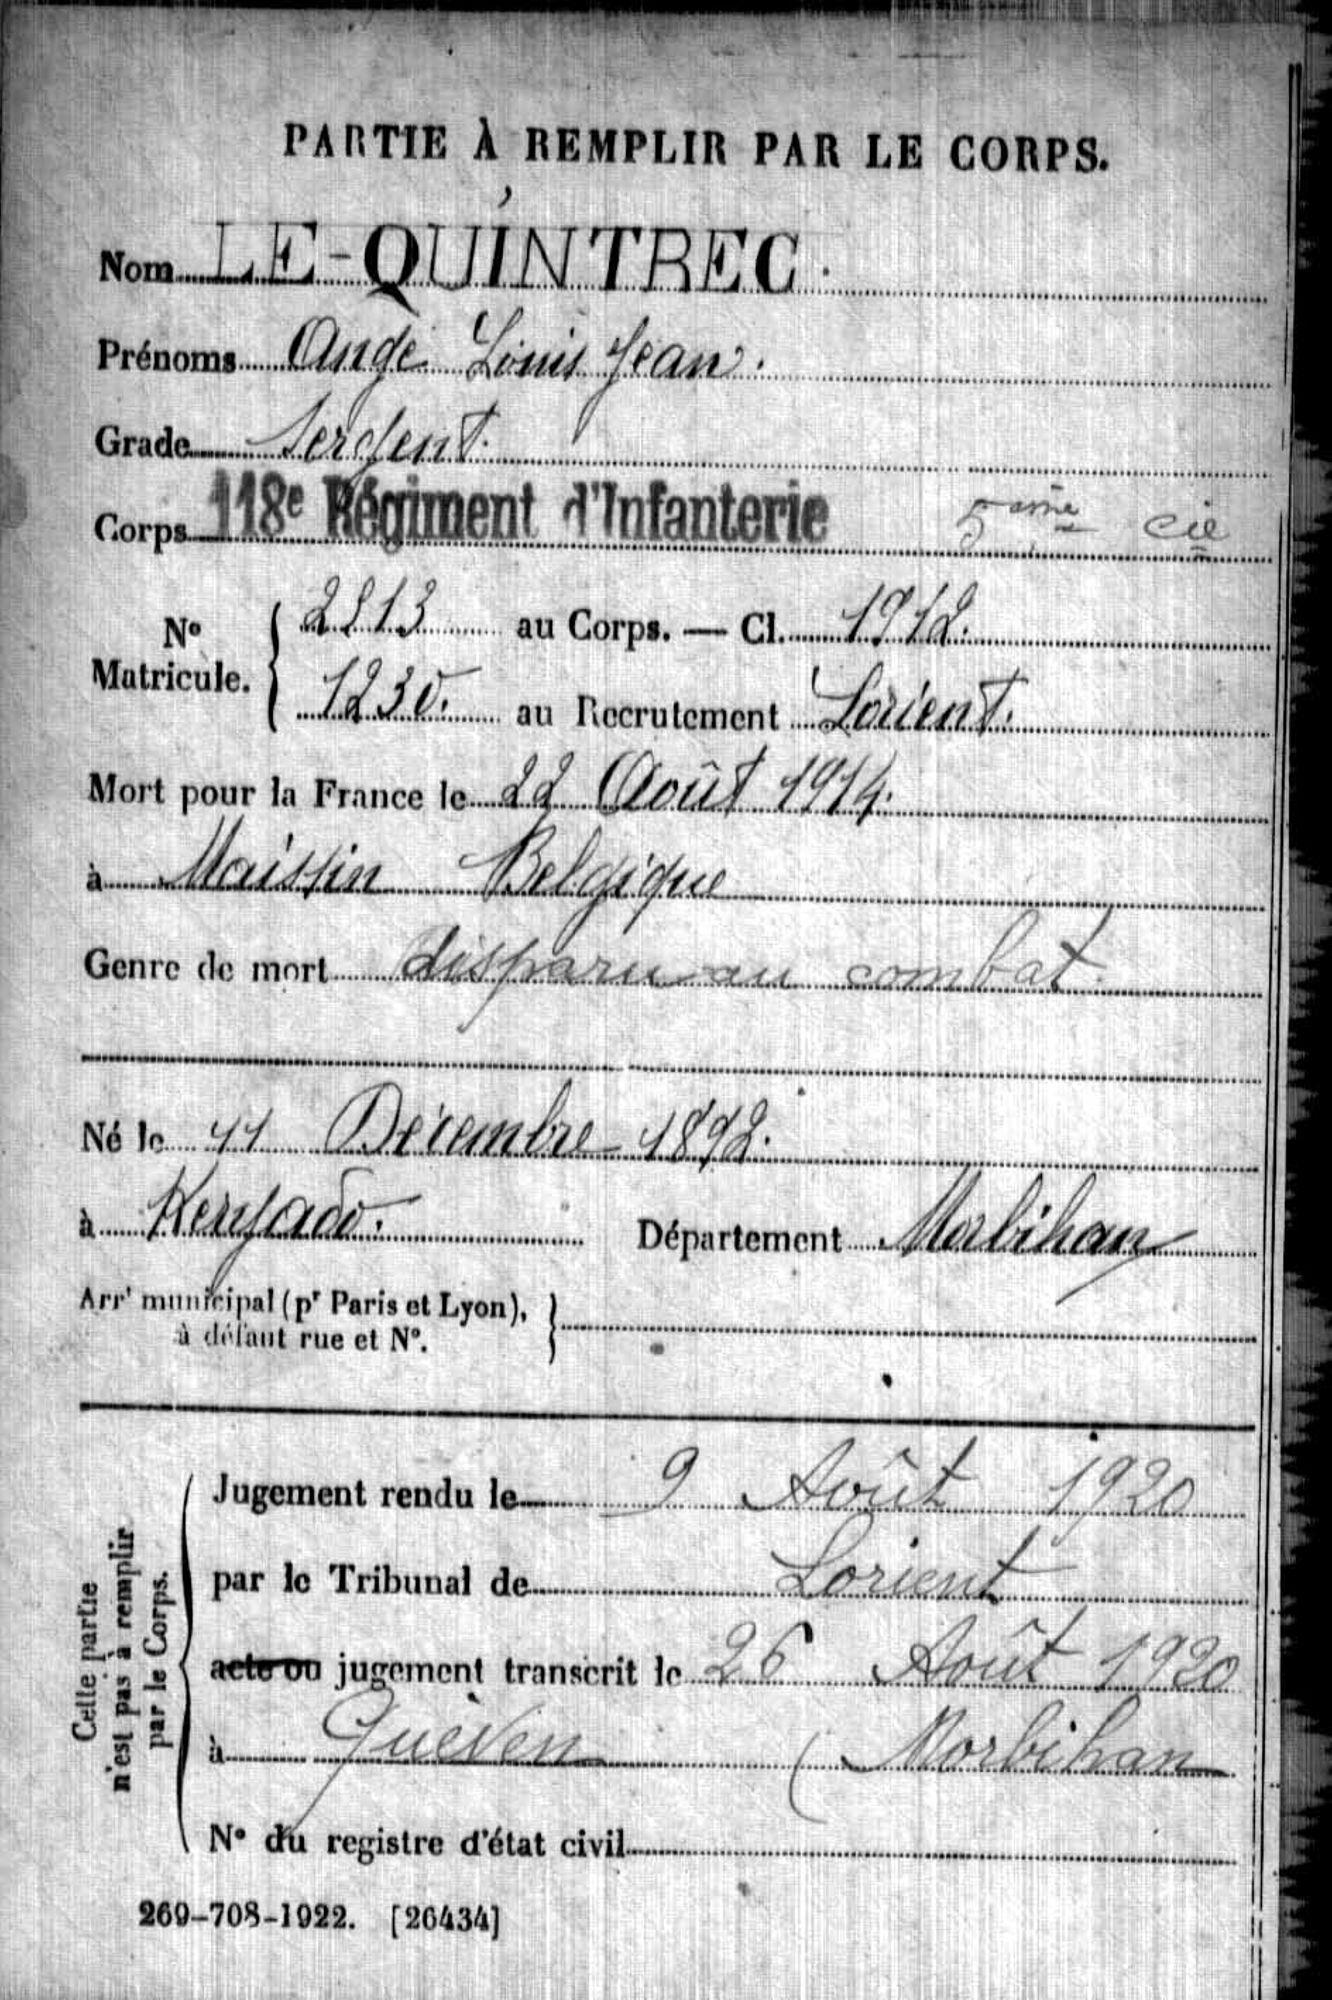 PARTIE À REMPLIR PAR LE CORPS.
Nom LE-QUINTREC.
Prénoms Ange Louis Jean.
Grade Sergent.
Corps 118e Régiment d'Infanterie 5ème cie
No Matricule. { 2213 au Corps. — Cl. 1912.
1230. au Recrutement Lorient.
Mort pour la France le 22 Août 1914.
à Maissin Belgique
Genre de mort disparu au combat
Né le 11 Décembre 1892.
à Département Morbihan
Arrt municipal (pr Paris et Lyon), à défaut rue et No. }
Cette partie n'est pas à remplir par le Corps.
Jugement rendu le 9 Août 1920
par le Tribunal de Lorient
acte ou jugement transcrit le 26 Août 1920
à Quéven (Morbihan
No du registre d'état civil
269-708-1922. [26434]